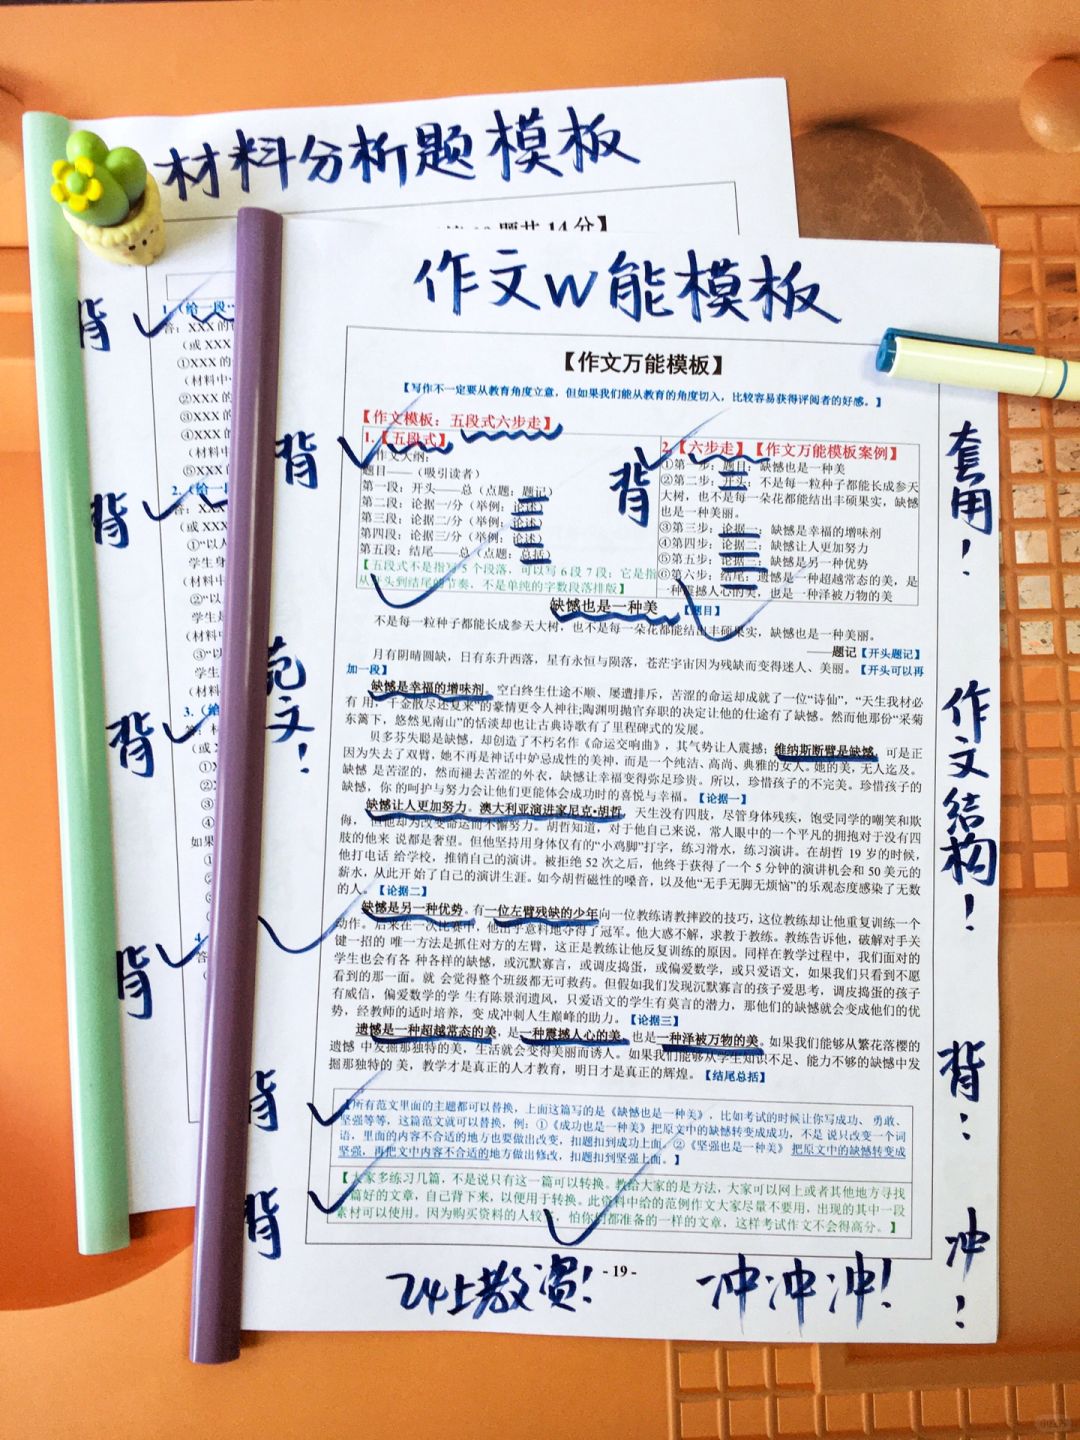 材料分析题模板
题共14分】
背
1.（给一段
答：XXX的
（或XXX
①XXX的
（材料中
②XXX的
③XXX的
④XXX的
（材料中
⑤XXX
背
2.（给一段
答：XXX
（或XXX
①“以人
学生是
（材料中
②“以
学生
（材料中
③“以
学生
（材料
背
3.（给
背
作文W能模板
【作文万能模板】
【写作不一定要从教育角度立意，但如果我们能从教育的角度切入，比较容易获得评阅者的好感。】
【作文模板：五段式六步走】
1.【五段式】
背
作文大纲：
题目——（吸引读者）
第一段：开头——总（点题：题记）
第二段：论据一/分（举例：论述）
第三段：论据二/分（举例：论述）
第四段：论据三/分（举例：论述）
第五段：结尾——总（点题：总括）
【五段式不是指写5个段落，可以写6段7段；它是指
从开头到结尾的节奏，不是单纯的字数段落排版】
2.【六步走】【作文万能模板案例】
背
①第一步：题目：缺憾也是一种美
②第二步：开头：不是每一粒种子都能长成参天
大树，也不是每一朵花都能结出丰硕果实，缺憾
也是一种美丽。
③第三步：论据一：缺憾是幸福的增味剂
④第四步：论据二：缺憾让人更加努力
⑤第五步：论据三：缺憾是另一种优势
⑥第六步：结尾：遗憾是一种超越常态的美，是
一种震撼人心的美，也是一种泽被万物的美
缺憾也是一种美 【题目】
不是每一粒种子都能长成参天大树，也不是每一朵花都能结出丰硕果实，缺憾也是一种美丽。
——题记【开头题记】
月有阴晴圆缺，日有东升西落，星有永恒与陨落，苍茫宇宙因为残缺而变得迷人、美丽。【开头可以再
加一段】
缺憾是幸福的增味剂。空白终生仕途不顺、屡遭排斥，苦涩的命运却成就了一位“诗仙”，“天生我材必
有用，千金散尽还复来”的豪情更令人神往；陶渊明抛官弃职的决定让他的仕途有了缺憾。然而他那份“采菊
东篱下，悠然见南山”的恬淡却也让古典诗歌有了里程碑式的发展。
贝多芬失聪是缺憾，却创造了不朽名作《命运交响曲》，其气势让人震撼；维纳斯断臂是缺憾，可是正
因为失去了双臂，她不再是神话中妒忌成性的美神，而是一个纯洁、高尚、典雅的女人。她的美，无人迄及。
缺憾 是苦涩的，然而褪去苦涩的外衣，缺憾让幸福变得弥足珍贵。所以，珍惜孩子的不完美。珍惜孩子的
缺憾，你 的呵护与努力会让他们更能体会成功时的喜悦与幸福。【论据一】
缺憾让人更加努力。澳大利亚演讲家尼克·胡哲 天生没有四肢，尽管身体残疾，饱受同学的嘲笑和欺
侮，但他却为改变命运而不懈努力。胡哲知道，对于他自己来说，常人眼中的一个平凡的拥抱对于没有四
肢的他来 说都是奢望。但他坚持用身体仅有的“小鸡脚”打字，练习滑水，练习演讲。在胡哲 19 岁的时候，
他打电话 给学校，推销自己的演讲。被拒绝 52 次之后，他终于获得了一个 5 分钟的演讲机会和 50 美元的
薪水，从此开始了自己的演讲生涯。如今胡哲磁性的嗓音，以及他“无手无脚无烦恼”的乐观态度感染了无数
的人。【论据二】
缺憾是另一种优势。有一位左臂残缺的少年向一位教练请教摔跤的技巧，这位教练却让他重复训练一个
动作。后来在一次比赛中，他出乎意料地夺得了冠军。他大惑不解，求教于教练。教练告诉他，破解对手关
键一招的 唯一方法是抓住对方的左臂，这正是教练让他反复训练的原因。同样在教学过程中，我们面对的
学生也会有各 种各样的缺憾，或沉默寡言，或调皮捣蛋，或偏爱数学，或只爱语文，如果我们只看到不愿
看到的那一面。就 会觉得整个班级都无可救药。但假如我们发现沉默寡言的孩子爱思考，调皮捣蛋的孩子
有威信，偏爱数学的学 生有陈景润遗风，只爱语文的学生有莫言的潜力，那他们的缺憾就会变成他们的优
势，经教师的适时培养，变 成冲刺人生巅峰的助力。【论据三】
遗憾是一种超越常态的美，是一种震撼人心的美，也是一种泽被万物的美。如果我们能够从繁花落樱的
遗憾 中发掘那独特的美，生活就会变得美丽而诱人。如果我们能够从学生知识不足、能力不够的缺憾中发
掘那独特的 美，教学才是真正的人才教育，明日才是真正的辉煌。【结尾总括】
【所有范文里面的主题都可以替换，上面这篇写的是《缺憾也是一种美》，比如考试的时候让你写成功、勇敢、
坚强等等，这篇范文就可以替换，例：①《成功也是一种美》把原文中的缺憾转变成成功，不是 说只改变一个词
语，里面的内容不合适的地方也要做出改变，扣题扣到成功上面。②《坚强也是一种美》把原文中的缺憾转变成
坚强，再把文中内容不合适的地方做出修改，扣题扣到坚强上面。】
【大家多练习几篇，不是说只有这一篇可以转换。教给大家的是方法，大家可以网上或者其他地方寻找
一篇好的文章，自己背下来，以便用于转换。此资料中给的范例作文大家尽量不要用，出现的其中一段
素材可以使用。因为购买资料的人较多，怕你们都准备的一样的文章，这样考试作文不会得高分。】
- 19 -
范文！
背
背
24上教资！
冲冲冲！
套用！
作文结构！
背：
冲！